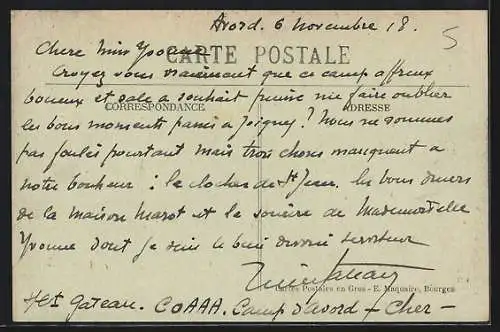 Avord. 6 novembre 18. 5
Chere Miss Yvonne
CARTE POSTALE
Croyez vous vraiment que ce camp affreux
boueux et sale a souhait puisse me faire oublier
CORRESPONDANCE ADRESSE
les bons moments passés a Joigney? Nous ne sommes
pas foulés pourtant mais trois choses manquent a
notre bonheur: le clocher de St Jean. les bons diners
de la maison Marot et le sourire de Mademoiselle
Yvonne dont je suis le bien devoué serviteur
Cartes Postales en Gros - E. Maquaire, Bourges
Gateau. COAAA. Camp d'avord - Cher -